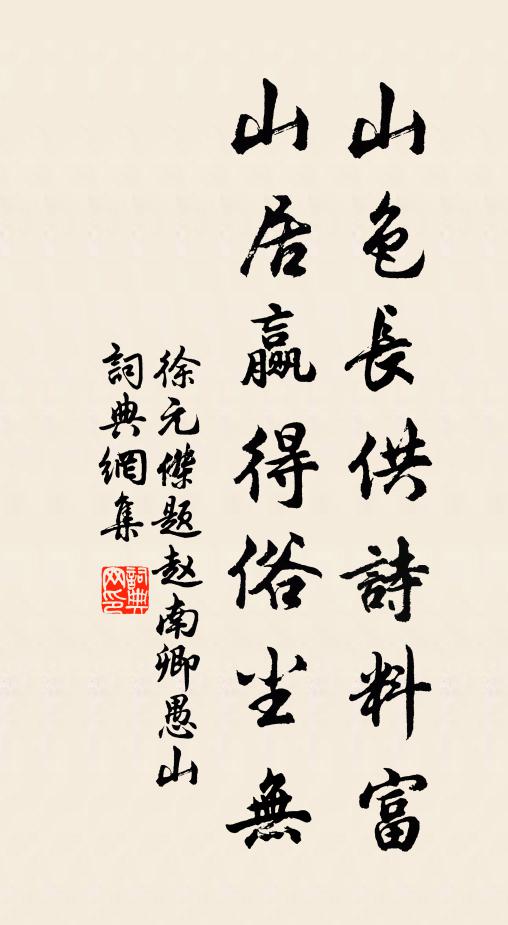 山色長供詩料富
山居贏得俗尘無
徐元傑題赵南卿愚山
詞典網集
詞典
网印